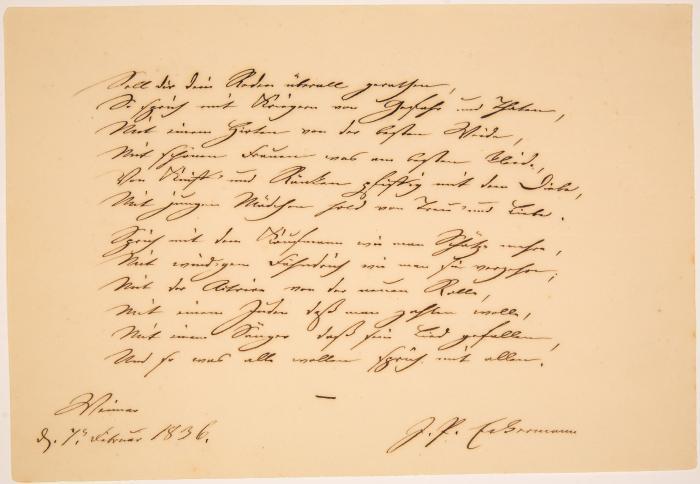 Soll dir dein Reden überall gerathen,
So sprich mit Kriegern von Gefahr und Thaten,
Mit einem Hirten von der besten Weide,
Mit schönen Frauen was am besten kleide,
Von Kniff- und Ränken pfiffig mit dem Diebe,
Mit jungen Mädchen hold von Treu' und Liebe.
Sprich mit dem Kaufmann wie man Schätze mehre,
Mit windigem Fähndrich wie man sie verzehre,
Mit der Actrice von der neuen Rolle,
Mit einem Juden daß man zahlen wolle,
Mit einem Sänger daß sein Lied gefallen,
Und so was alle wollen sprich mit allen.
Weimar
d. 7n Februar 1836.
J. P. Eckermann